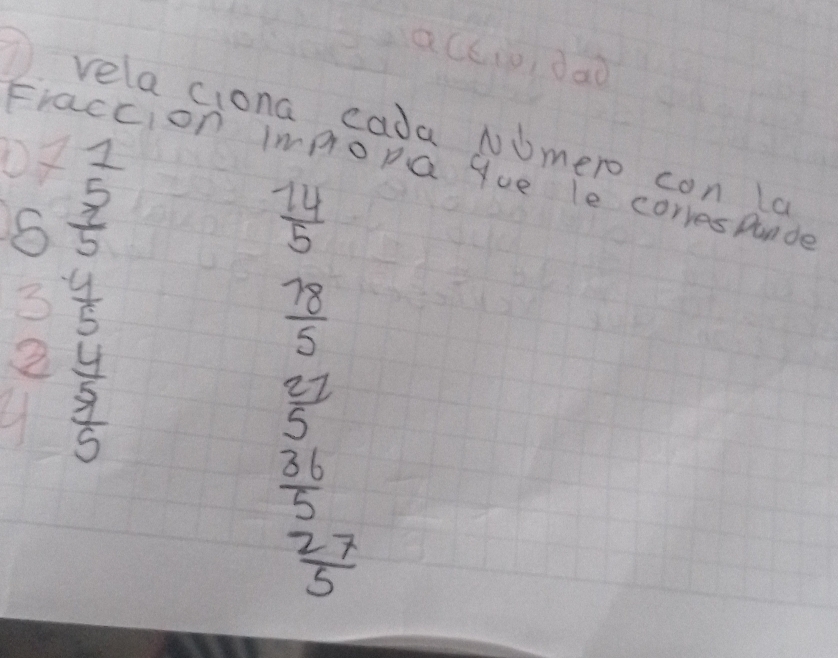 1
vela ciona cada Número con la
Fraccion impropia que le corresponde
7 1/5
5 2/5
3 4/5
2 4/5
4 1/5
14/5
18/5
21/5
36/5
27/5